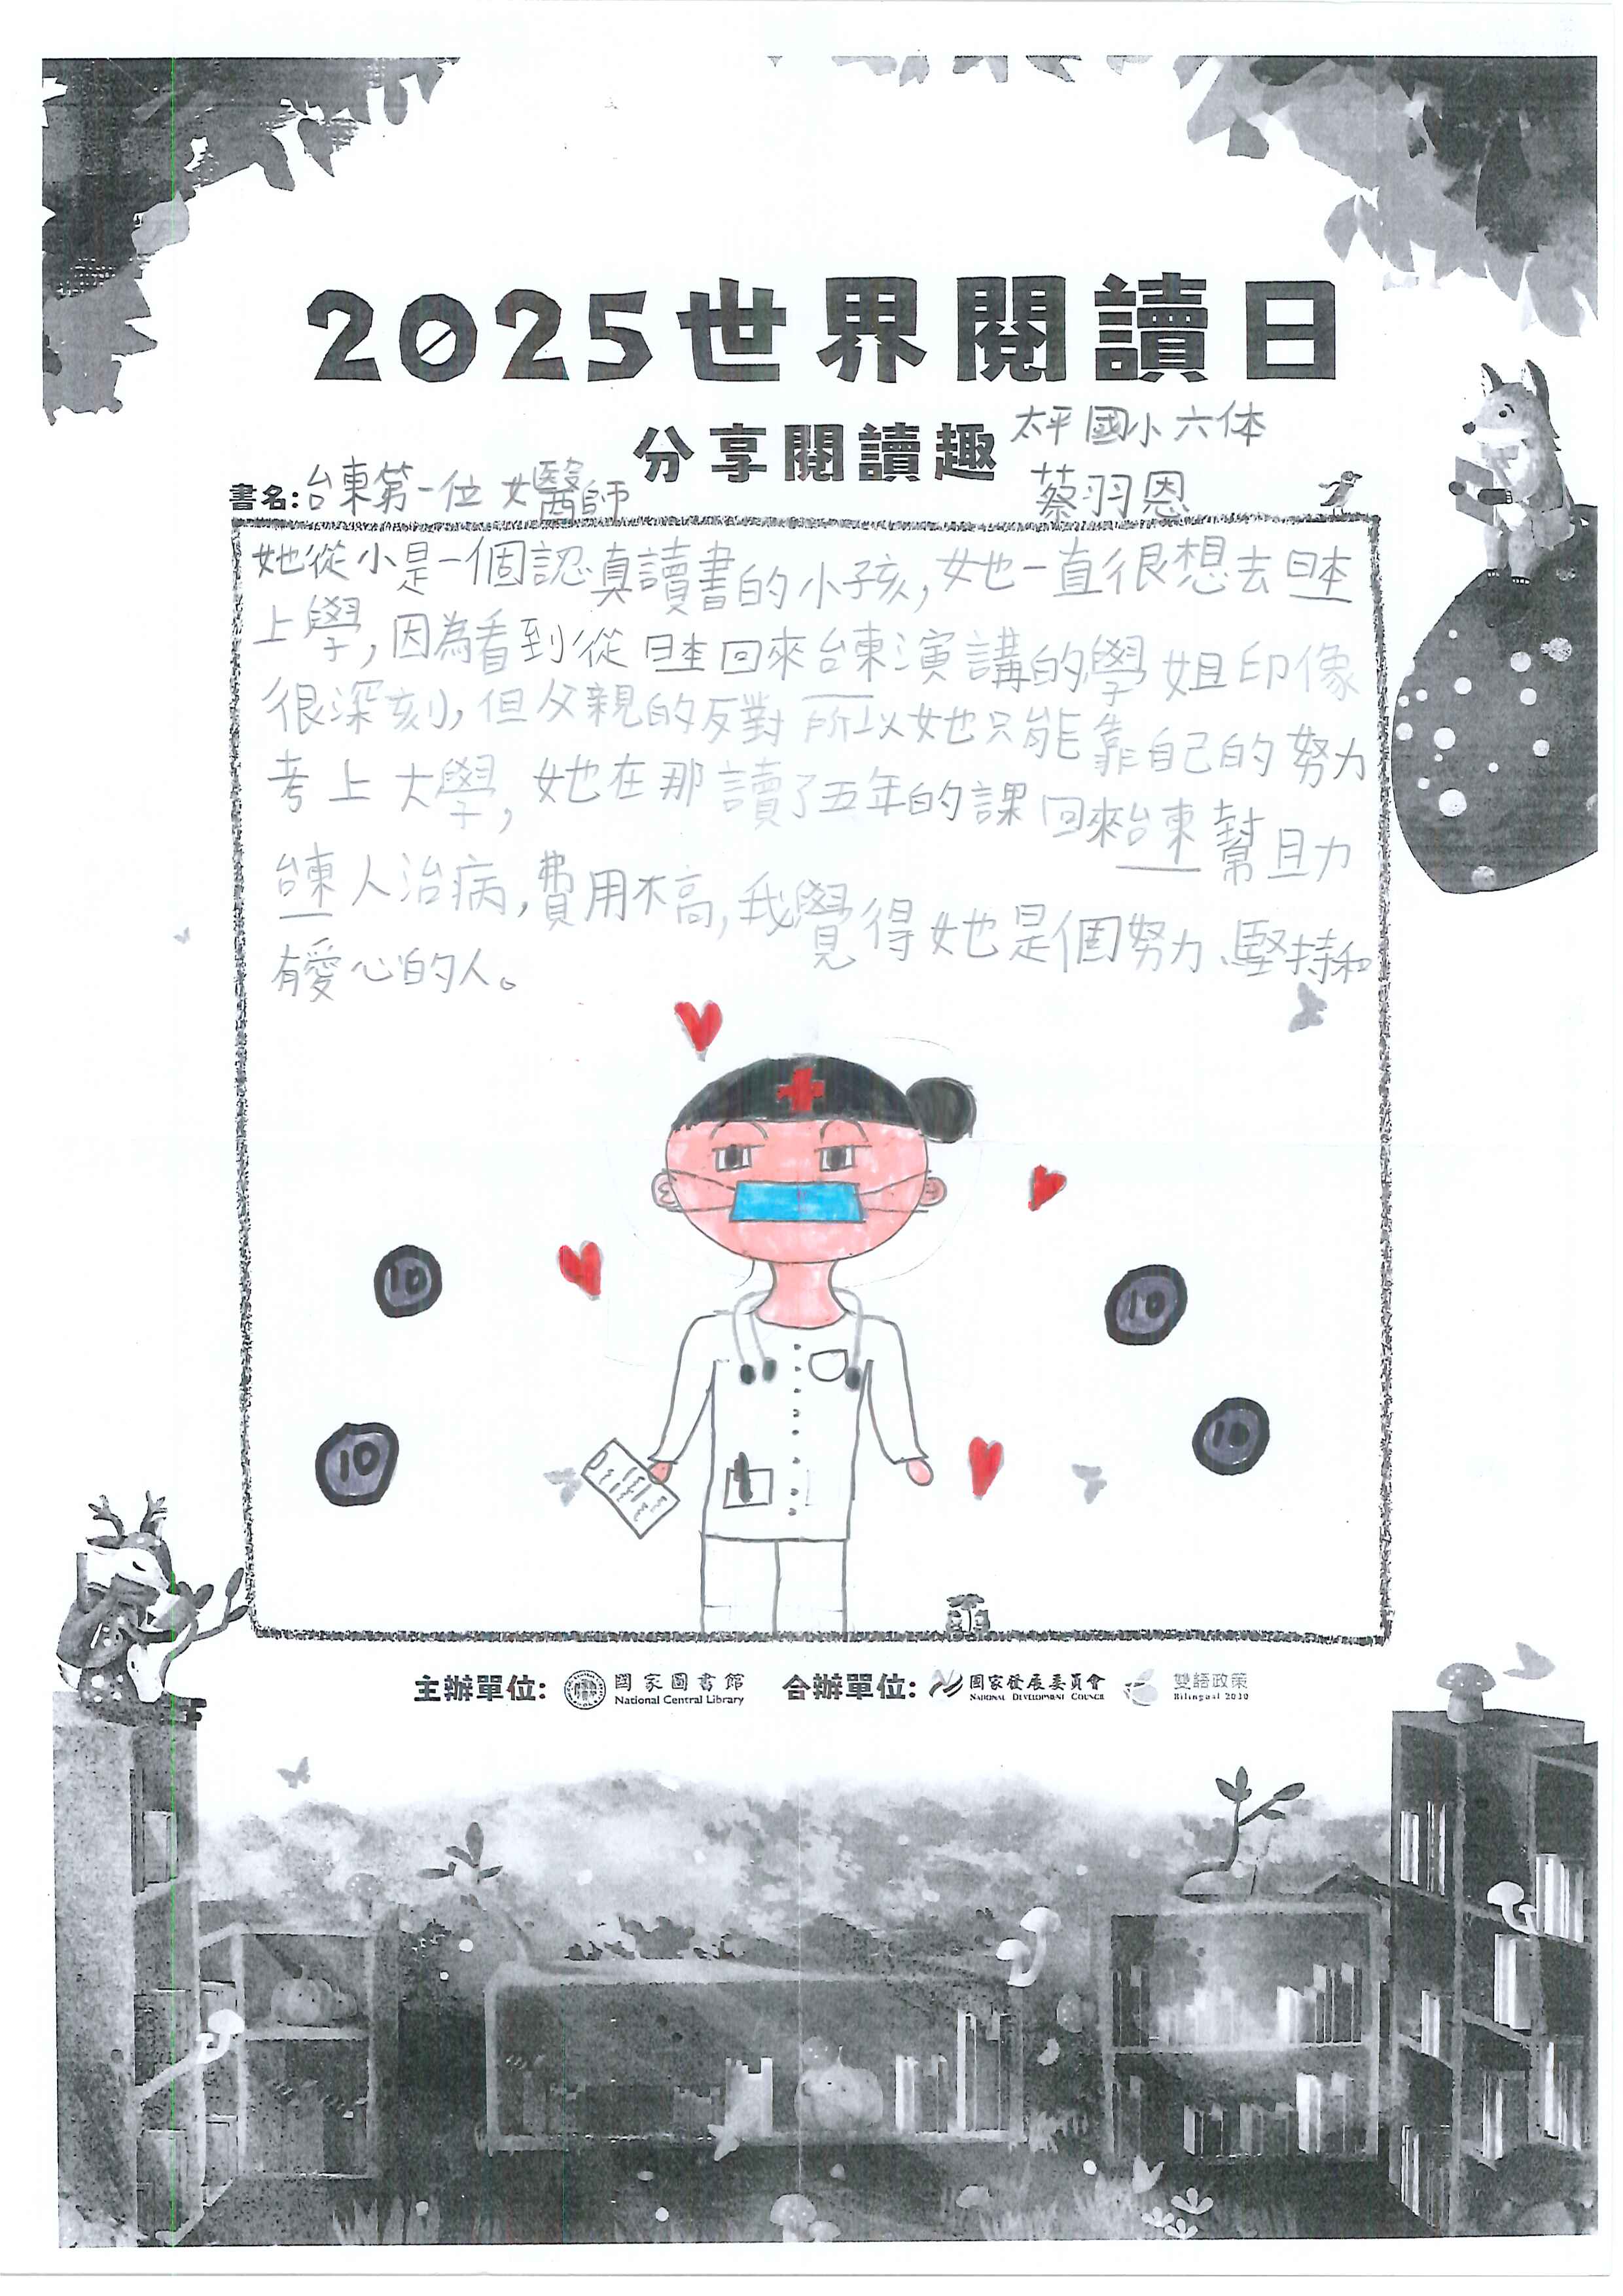 2025世界閱讀日
分享閱讀趣
太平國小六体
蔡羽恩
書名:台東第一位女醫師
她從小是一個認真讀書的小孩,她一直很想去日本
上學,因為看到從日本回來台東演講的學姐印像
很深刻,但父親的反對所以她只能靠自己的努力
考上大學,她在那讀了五年的課回來台東幫助
台東人治病,費用不高,我覺得她是個努力、堅持和
有愛心的人。
10
10
10
10
主辦單位: 國家圖書館 合辦單位: 國家發展委員會 雙語政策
National Central Library NATIONAL DEVELOPMENT COUNCIL Bilingual 2030